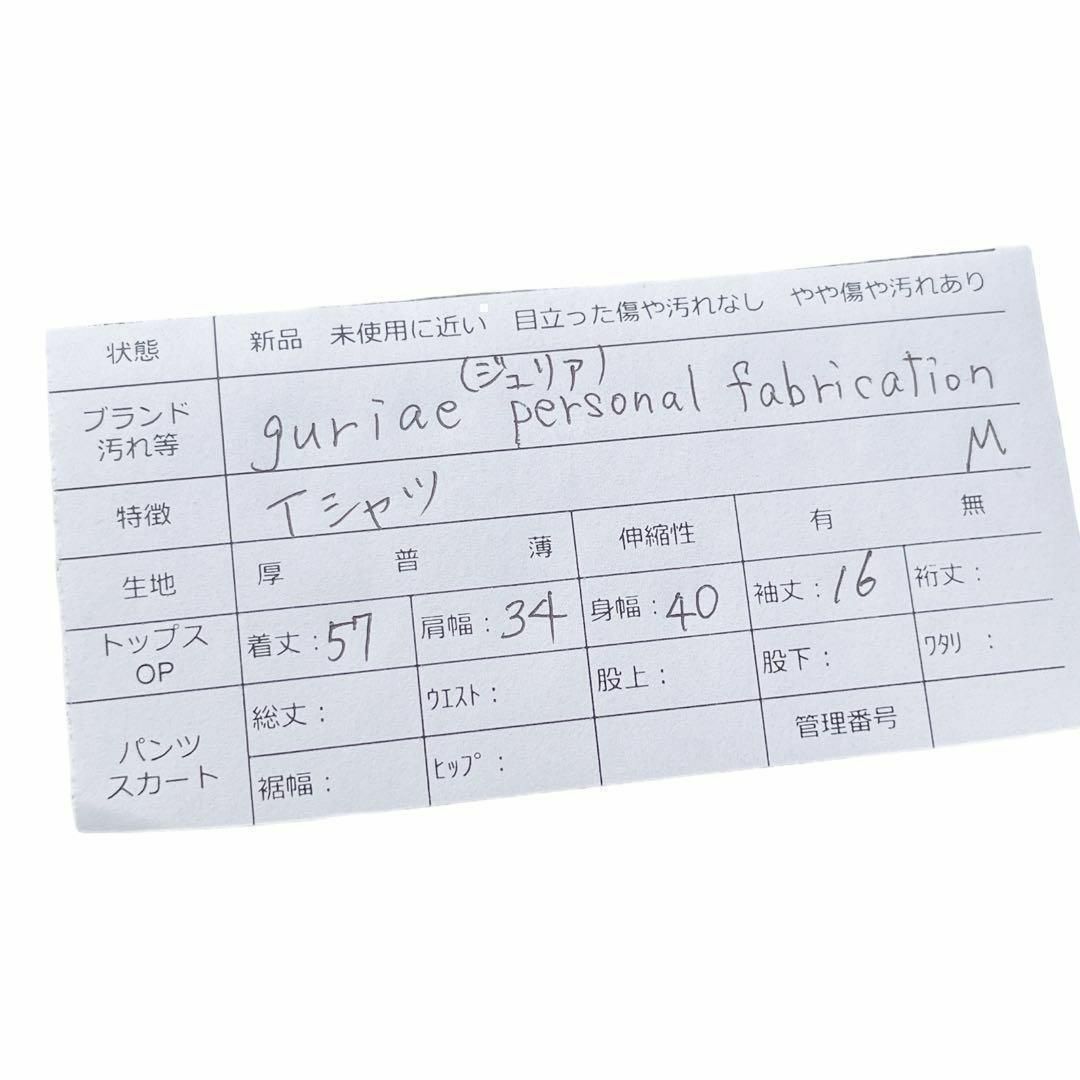 状態 新品 未使用に近い 目立った傷や汚れなし やや傷や汚れあり
(ジュリア)
ブランド 汚れ等 guriae personal fabrication
特徴 Tシャツ M
生地 厚 普 薄 伸縮性 有 無
トップス OP 着丈:57 肩幅:34 身幅:40 袖丈:16 裄丈:
パンツ スカート 総丈: ウエスト: 股上: 股下: ワタリ:
裾幅: ヒップ: 管理番号